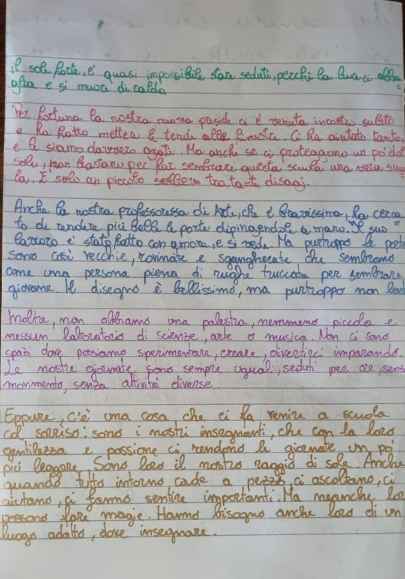 il sole forte, è quasi impossibile stare seduti, perché la luce ci abba
glia e si muore di caldo.
Per fortuna la nostra nuova preside ci è venuta incontro subito
e ha fatto mettere le tende alle finestre. Ci ha aiutato tanto
e le siamo davvero grati. Ma anche se ci proteggono un po' dal
sole, non bastano per far sembrare questa scuola una vera scuo
la. È solo un piccolo sollievo tra tanti disagi.
Anche la nostra professoressa di Arte, che è bravissima, ha cerca
to di rendere più belle le porte dipingendole a mano. Il suo
lavoro è stato fatto con amore, e si vede. Ma purtroppo le porte
sono così vecchie, rovinate e sgangherate che sembrano
come una persona piena di rughe truccata per sembrare
giovane. Il disegno è bellissimo, ma purtroppo non
Inoltre, non abbiamo una palestra, nemmeno piccola e
nessun laboratorio di scienze, arte o musica. Non ci sono
spazi dove possiamo sperimentare, creare, divertirci imparando.
Le nostre giornate sono sempre uguali, seduti per ore, senza
movimento, senza attività diverse.
Eppure, c'è una cosa che ci fa venire a scuola
col sorriso: sono i nostri insegnanti, che con la loro
gentilezza e passione ci rendono le giornate un po'
più leggere. Sono loro il nostro raggio di sole. Anche
quando tutto intorno cade a pezzi, ci ascoltano, ci
aiutano, ci fanno sentire importanti. Ma neanche loro
possono fare magie. Hanno bisogno anche loro di un
luogo adatto, dove insegnare.